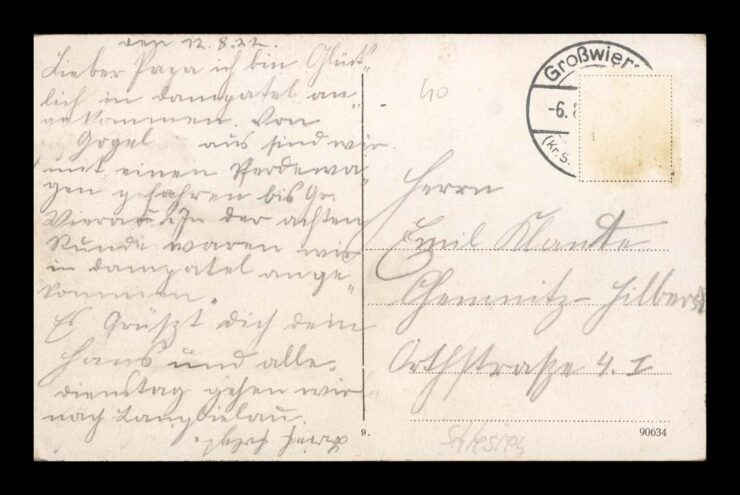 den 12. 8. 22.
Lieber Papa ich bin Glück„
lich in dampatel an„
gekommen. Von
Gogel aus sind wir
mit einen Perdewa„
gen gefahren bis Gr.
Vierau. In der achten
Stunde waren wir
in dampatel ange„
kommen.
Es Grüszt dich dein
Hans und alle.
dienstag gehen wir
nach Langbielau.
40
Großwier
-6.
(Kr. S.
Herrn
Emil Klandte
Chemnitz- Hilbers
Orthstraße 4. I
9.
90634